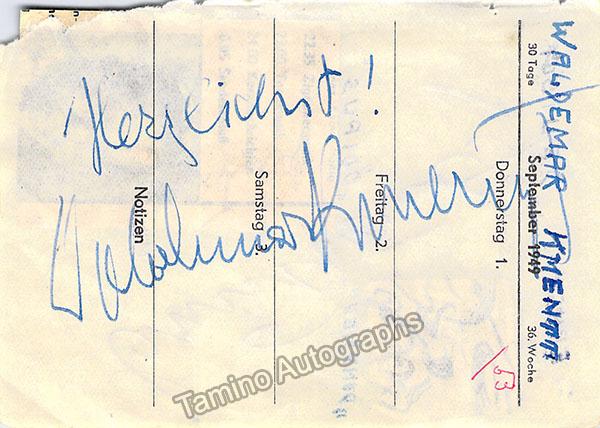 Herzlichst!
Waldemar Kmentt
WALDEMAR KMENTT
30 Tage September 1949 36. Woche
Donnerstag 1.
Freitag 2.
Samstag 3.
Notizen
/53
Tamino Autographs